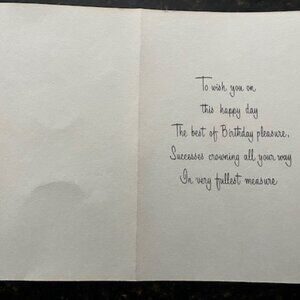 To wish you on
this happy day
The best of Birthday pleasure,
Successes crowning all your way
In very fullest measure